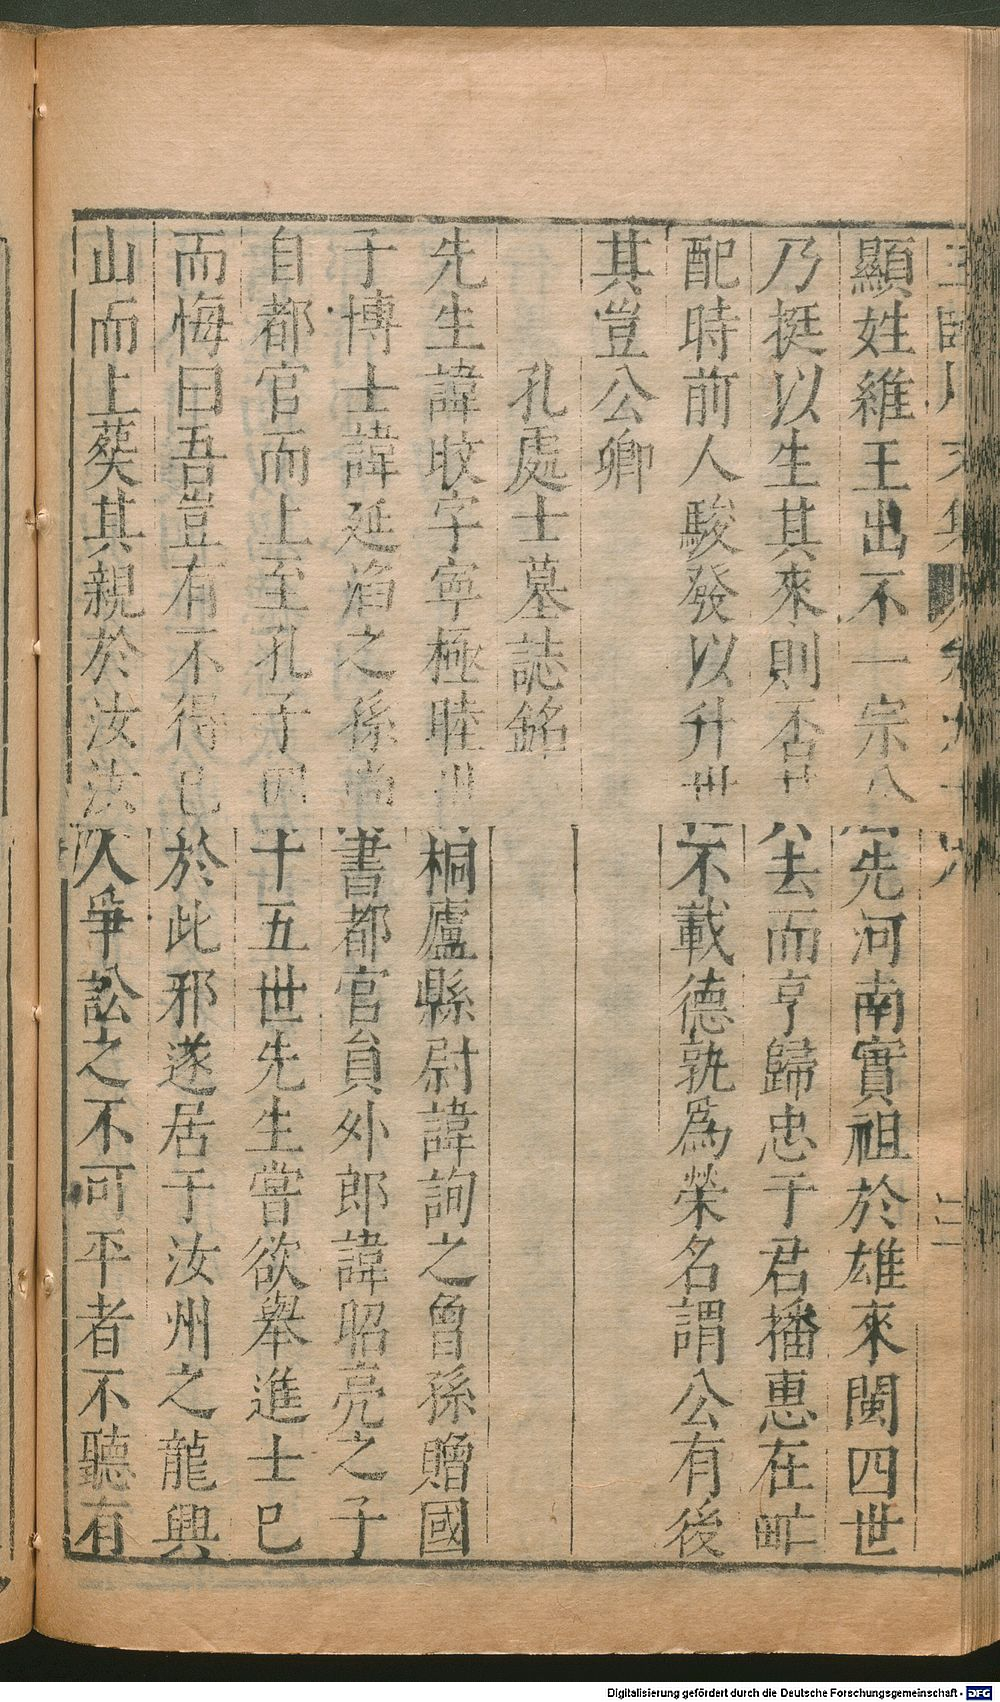 顯姓維王出不一宗先河南實祖於雄來閩四世
乃挺以生其來則否去而亨歸忠于君播惠在甿
配時前人駿發以升世不載德孰為榮名謂公有後
其豈公卿
孔處士墓誌銘
先生諱旼字寧極睦州桐廬縣尉諱詢之曾孫贈國
子博士諱延滔之孫尚書都官員外郎諱昭亮之子
自都官而上至孔子四十五世先生嘗欲舉進士已
而悔曰吾豈有不得已於此邪遂居于汝州之龍興
山而上葬其親於汝汝人爭訟之不可平者不聽有
Digitalisierung gefördert durch die Deutsche Forschungsgemeinschaft - DFG